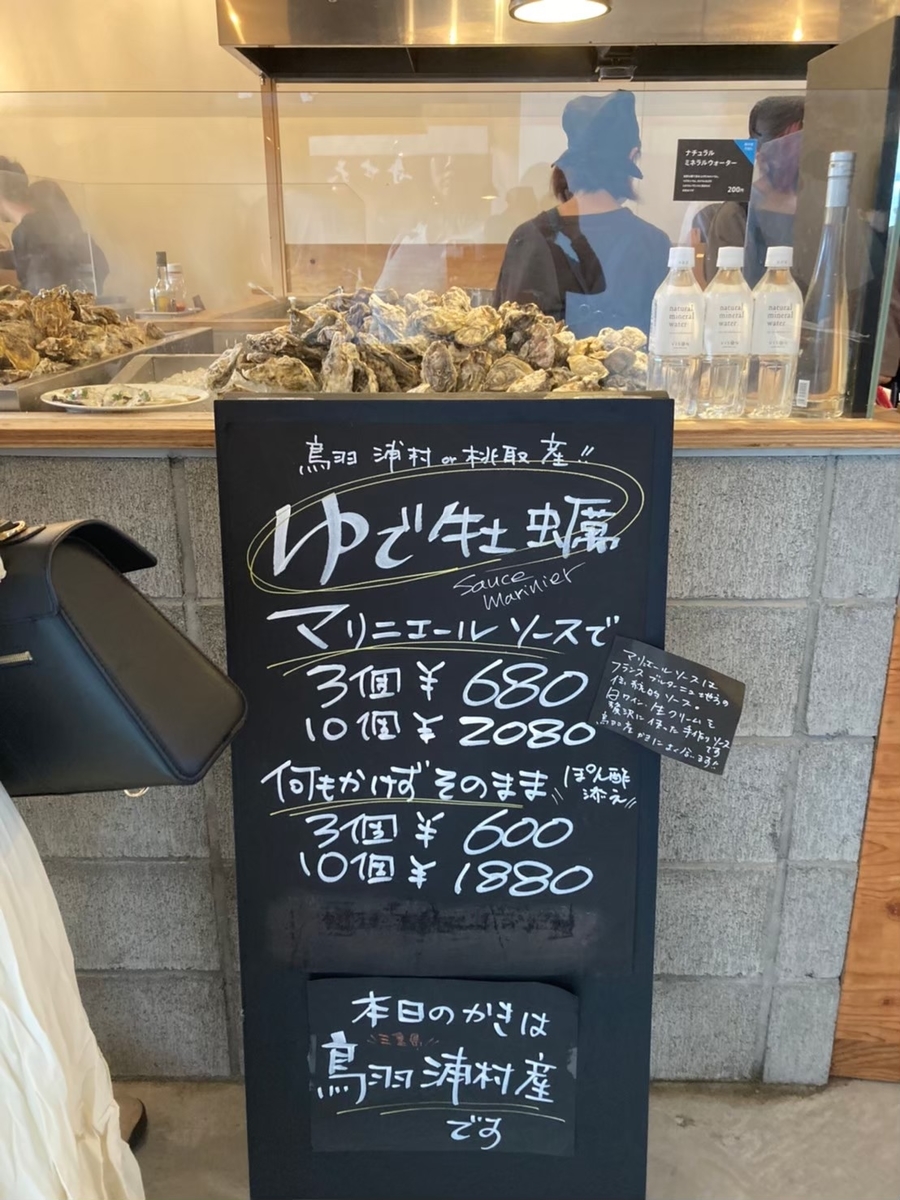 ナチュラル
ミネラルウォーター
200円
natural
mineral
water
natural
mineral
water
natural
mineral
water
鳥羽 浦村 or 桃取 産!!
ゆで牡蠣
Sauce
Marinier
マリニエール ソースで
3個 ¥ 680
10個 ¥ 2080
マリエールソースは
フランス ブルターニュ地方の
伝統的ソース。
白ワイン、生クリームを
贅沢に使った手作りソース
です
鳥羽産かきによく合います!!
何もかけず そのまま
ぽん酢
添え!!
3個 ¥ 600
10個 ¥ 1880
本日のかきは
三重県
鳥羽浦村産
です